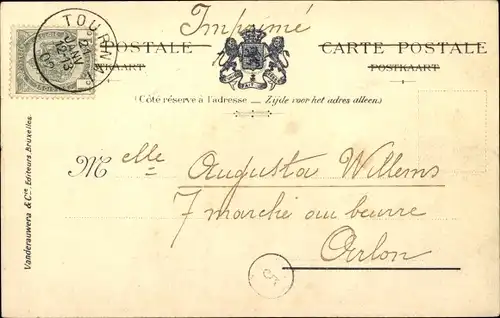 Imprimé
TOURNAI
JANV
12-13
CARTE POSTALE CARTE POSTALE
POSTKAART POSTKAART
(Côté réservé à l'adresse _ Zijde voor het adres alleen)
Melle Augusta Willems
7 marché au beurre
Arlon
5
Vanderauwera & Cie, Editeurs, Bruxelles